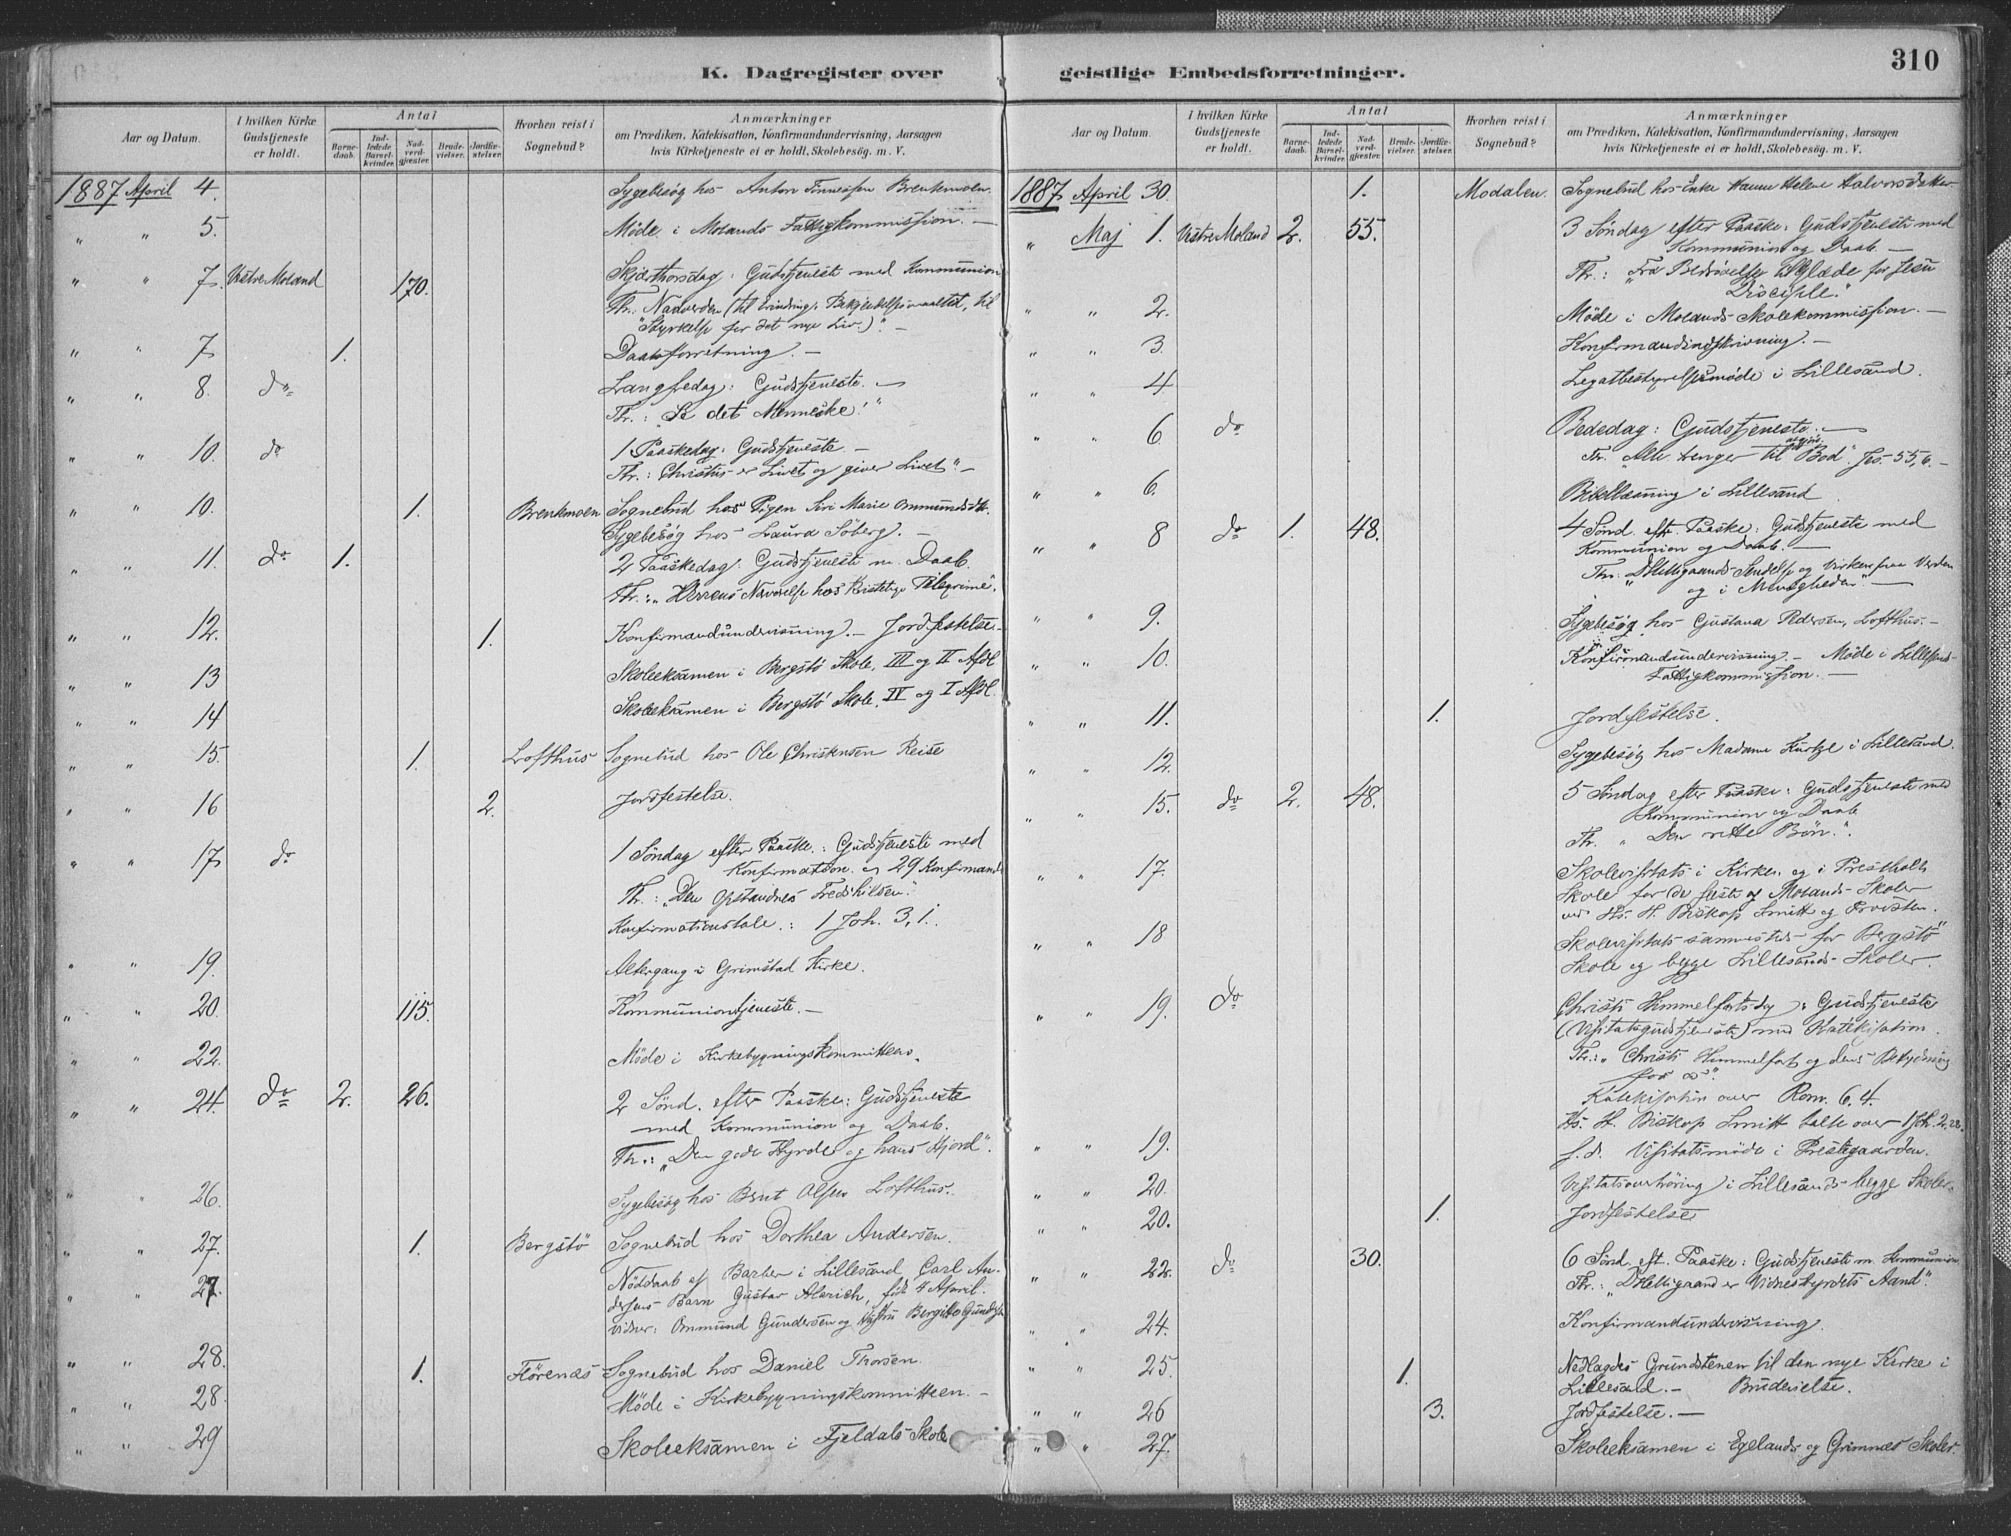 310
K. Dagregister over geistlige Embedsforretninger.
Aar og Datum.
I hvilken Kirke Gudstjeneste er holdt.
Antal
Barne-daab.
Ind-ledede Barsel-kvinder.
Nad-verd-gjæster.
Brude-vielser.
Jordfæ-stelser.
Hvorhen reist i Sognebud?
Anmærkninger
om Prædiken, Katekisation, Konfirmandundervisning, Aarsagen
hvis Kirketjeneste ei er holdt, Skolebesög. m. V.
1887 April 4. Sygebesøg hos Anton Tønnessen Brenkmoen.
" " 5. Møde i Molands Fattigkommission. —
" " 7. Vestre Moland 170. Skjærthorsdag: Gudstjeneste med Kommunion
Th. Nadverden (til Erindring, Bekjendelse, til
"Styrkelse for det nye Liv.)". —
" " 7 1. Daabsforretning. —
" " 8. do Langfredag: Gudstjeneste. —
Th.: "Se det Menneske!"
" " 10. do 1 Paaskedag: Gudstjeneste —
Th.: Christus er Livet og giver Livet". —
" " 10. 1. Brenkmoen Sognebud hos Pigen Siri Marie Ommundsdtr.
Sygebesøg hos Laura Söberg. —
" " 11. do 1. 2 Paaskedag: Gudstjeneste m. Daab.
Th.: "Herrens Nærværelse hos kristelige Pilegrime".
" " 12. 1. Konfirmandundervisning. — Jordfestelse. —
" " 13 Skoleeksamen i Bergstø Skole, III og II Afdl.
" " 14 Skoleeksamen i Bergstø Skole, IV og I Afdl.
" " 15. 1. Lofthus Sognebud hos Ole Christensen Reise
" " 16 2. Jordfestelse.
" " 17 do 1 Søndag efter Paaske: Gudstjeneste med
Konfirmation. 29 Konfirmand.
Th.: "Den Opstandnes Fredshilsen".
Konfirmationstale: 1 Joh. 3, 1.
" " 19. Altergang i Grimstad Kirke.
" " 20. 115. Kommuniontjeneste. —
" " 22. Møde i Kirkebygningskommitteen.
" " 24. do 2. 26. 2 Sönd. efter Paaske: Gudstjeneste
med Kommunion og Daab.
Th.: "Den gode Hyrde og hans Hjord".
" " 26. Sygebesøg hos Bent Olsen Lofthus.
" " 27. 1. Bergstö Sognebud hos Dorthea Andersen.
" " 27. Nöddaab af Barber i Lillesand Carl An-
dersens Barn Gustav Alarich, født 4 April.
Vidner: Ommund Gundersen og Hustru Bergitte
" " 28. 1. Flörenæs Sognebud hos Daniel Thorsen.
" " 28. Møde i Kirkebygningskommitteen. —
" " 29 Skoleeksamen i Fjeldals Skole
Aar og Datum.
I hvilken Kirke Gudstjeneste er holdt.
Antal
Barne-daab.
Ind-ledede Barsel-kvinder.
Nad-verd-gjæster.
Brude-vielser.
Jordfæ-stelser.
Hvorhen reist i Sognebud?
Anmærkninger
om Prædiken, Katekisation, Konfirmandundervisning, Aarsagen
hvis Kirketjeneste ei er holdt, Skolebesög. m. V.
1887 April 30. 1. Modalen. Sognebud hos Enke Helene Halvorsdatter
" Maj 1. Vestre Moland 2. 55. 3 Søndag efter Paaske: Gudstjeneste med
Kommunion og Daab —
Th.: "Fra Bedrøvelse til Glæde for Jesu
Disciple."
" " 2. Møde i Molands Skolekommission. —
" " 3. Konfirmandindskrivning. —
" " 4 Legatbestyrelsesmøde i Lillesand.
" " 6 do Bededag: Gudstjeneste. —
Th. "Alle trenger til Bod". Jes. 55, 6. —
" " 6. Bibellæsning i Lillesand
" " 8 do 1. 48. 4 Sönd. efter Paaske: Gudstjeneste med
Kommunion og Daab. —
Th.: "D Helligaands Sendelse og Virken paa Verden
og i Menigheden" —
" " 9. Sygebesøg hos Gustava Pedersen, Lofthus. —
" " 10. Konfirmandundervisning — Møde i Lillesands
Fattigkommission. —
" " 11. 1. Jordfestelse.
" " 12. Sygebesøg hos Madame Kurtze i Lillesand.
" " 15. do 2. 48. 5 Søndag efter Paaske: Gudstjeneste med
Kommunion og Daab
Th. "Den rette Bön".
" " 17. Skolevisitats i Kirken og i Prestholt
Skole for de fleste af Molands Skoler
ved Hs. H. Biskop Smitt og Provsten.
" " 18 Skolevisitats sammesteds for Bergstö
Skole og begge Lillesands Skoler.
" " 19. do Christi Himmelfartsdag: Gudstjeneste
(Visitatsgudstjeneste) med Katekisation.
Th.: "Christi Himmelfart og dens Betydning
for os".
Katekisation over Rom. 6, 4.
Hs. H. Biskop Smitt talte over 1 Joh. 2, 28.
" " 19. s. d. Visitatsmøde i Prestegaarden.
" " 20. Visitatsoverhöring i Lillesands begge Skoler.
" " 20. 1. Jordfestelse
" " 22. do 30. 6 Sönd. eft. Paaske: Gudstjeneste m. Kommunion
Th.: "D Helligaand er Vidnesbyrdets Aand".
" " 24. Konfirmandundervisning.
" " 25. 1. Nedlagdes Grundstenen til den nye Kirke i
Lillesand. — Brudevielse.
" " 26 3. Jordfestelse. —
" " 27. Skoleeksamen i Egelands og Grimnes Skoler.